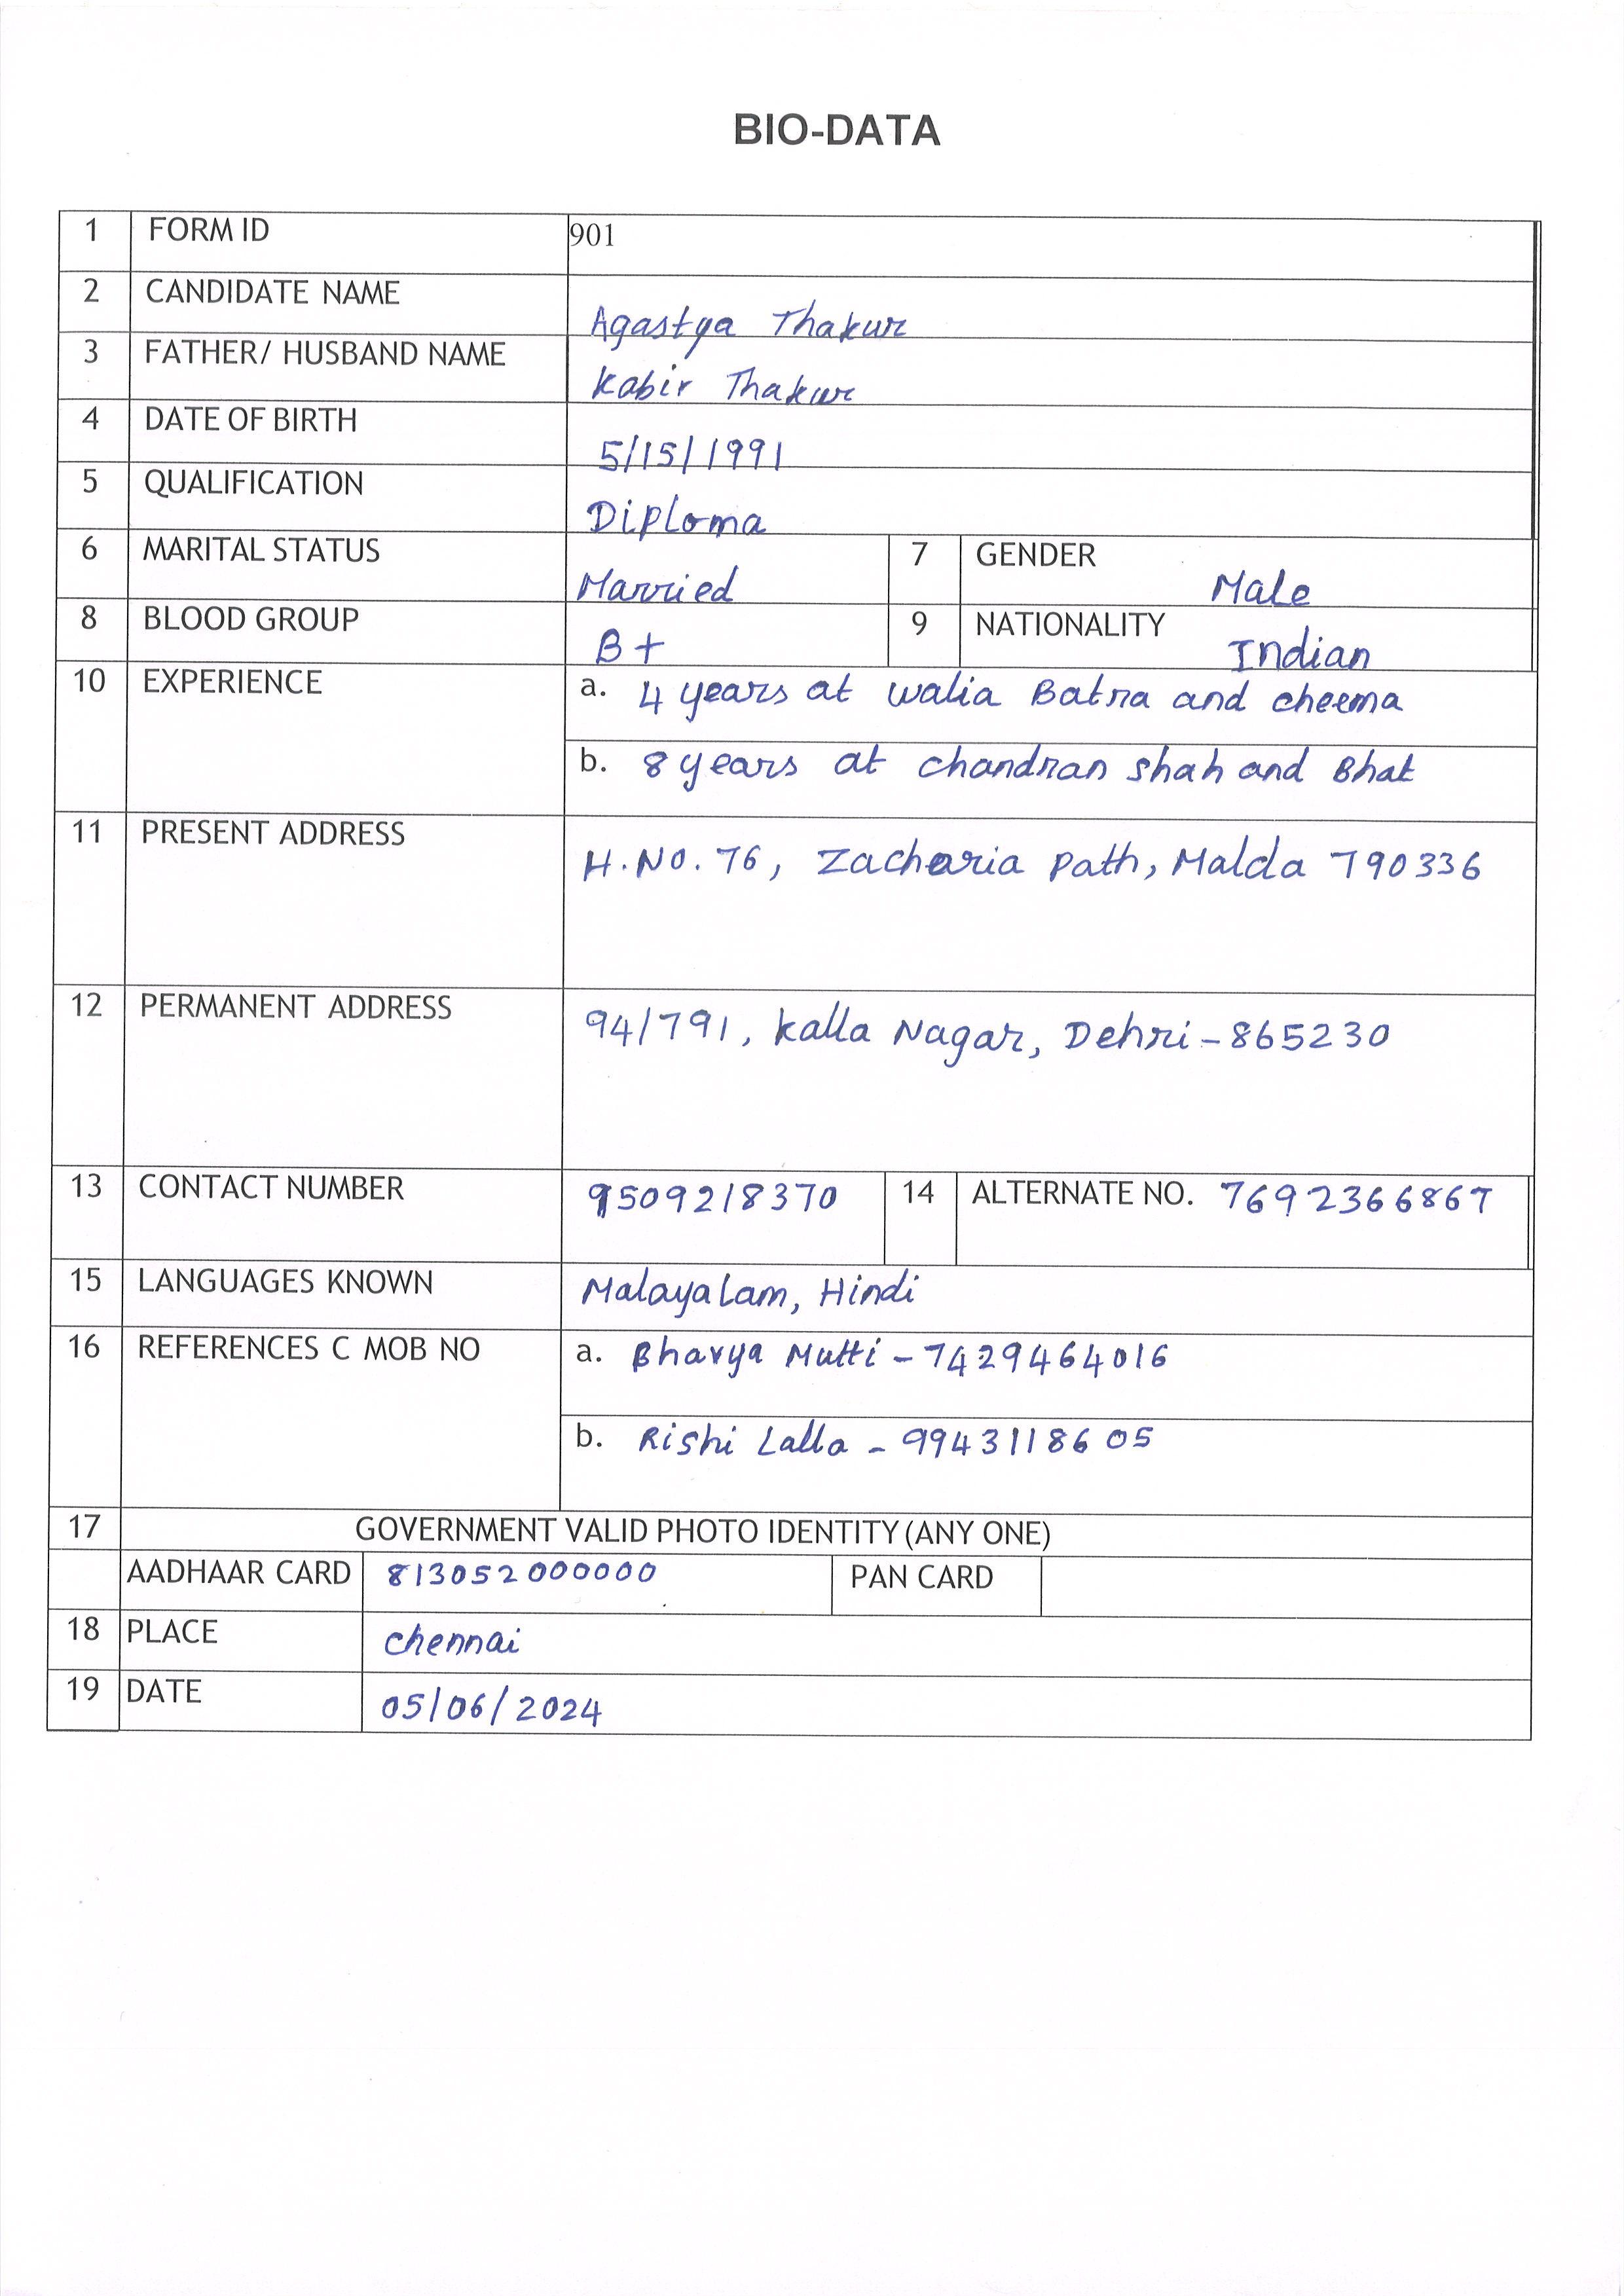 BIO-DATA
1 FORM ID 901
2 CANDIDATE NAME Agastya Thakur
3 FATHER/ HUSBAND NAME Kabir Thakur
4 DATE OF BIRTH 5/15/1991
5 QUALIFICATION Diploma
6 MARITAL STATUS Married 7 GENDER Male
8 BLOOD GROUP B+ 9 NATIONALITY Indian
10 EXPERIENCE a. 4 years at walia Batra and cheema
b. 8 years at chandran shah and Bhat
11 PRESENT ADDRESS H.NO. 76, Zacharia Path, Malda 790336
12 PERMANENT ADDRESS 94/791, Kalla Nagar, Dehri-865230
13 CONTACT NUMBER 9509218370 14 ALTERNATE NO. 7692366867
15 LANGUAGES KNOWN Malayalam, Hindi
16 REFERENCES C MOB NO a. Bhavya Mutti - 7429464016
b. Rishi Lalla - 9943118605
17 GOVERNMENT VALID PHOTO IDENTITY (ANY ONE)
AADHAAR CARD 813052000000 PAN CARD
18 PLACE Chennai
19 DATE 05/06/2024